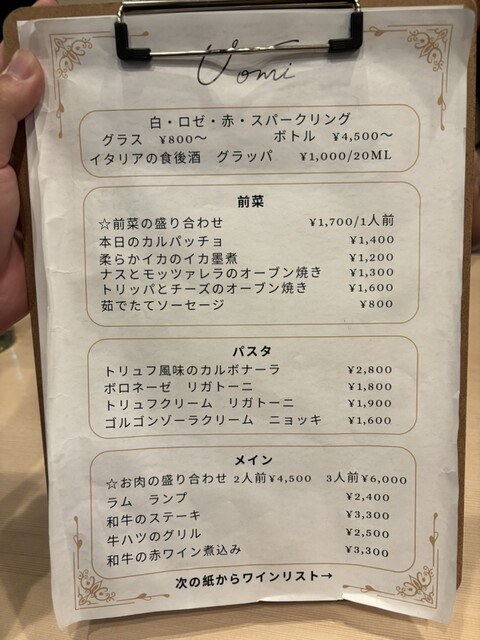 白・ロゼ・赤・スパークリング
グラス ¥800〜 ボトル ¥4,500〜
イタリアの食後酒 グラッパ ¥1,000/20ML
前菜
☆前菜の盛り合わせ ¥1,700/1人前
本日のカルパッチョ ¥1,400
柔らかイカのイカ墨煮 ¥1,200
ナスとモッツァレラのオーブン焼き ¥1,300
トリッパとチーズのオーブン焼き ¥1,600
茹でたてソーセージ ¥800
パスタ
トリュフ風味のカルボナーラ ¥2,800
ボロネーゼ リガトーニ ¥1,800
トリュフクリーム リガトーニ ¥1,900
ゴルゴンゾーラクリーム ニョッキ ¥1,600
メイン
☆お肉の盛り合わせ 2人前¥4,500 3人前¥6,000
ラム ランプ ¥2,400
和牛のステーキ ¥3,300
牛ハツのグリル ¥2,500
和牛の赤ワイン煮込み ¥3,300
次の紙からワインリスト→